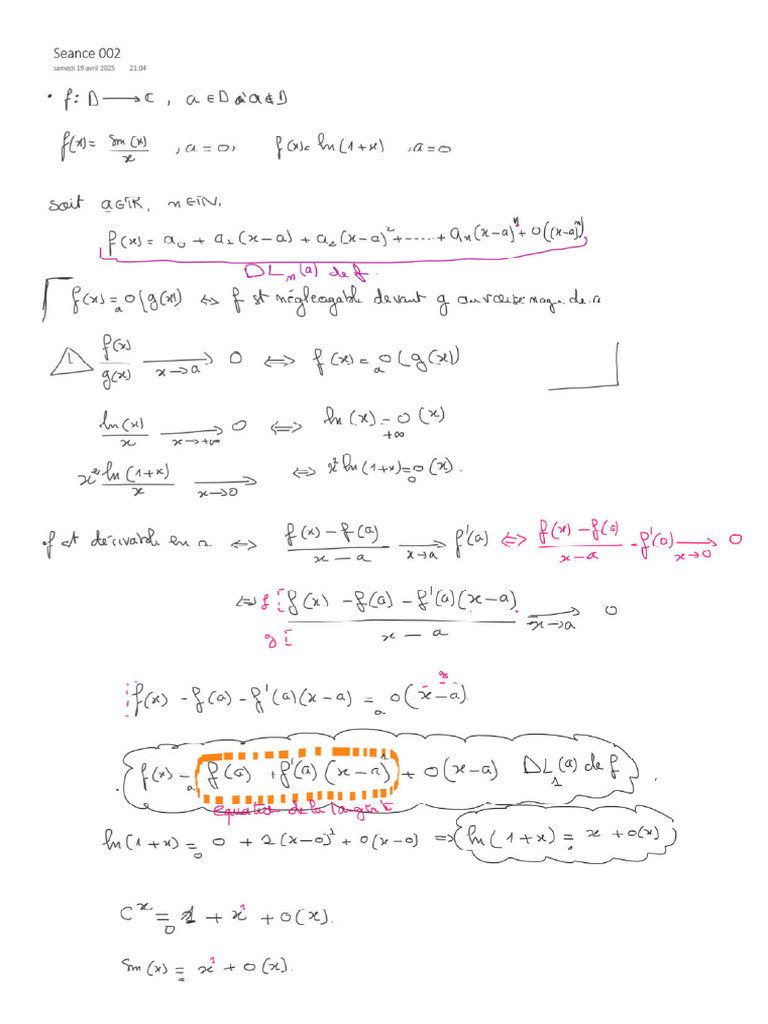 Seance 002
samedi 19 avril 2025 21:04
• f: D ⟶ C , a ∈ D a ∉ D
f(x) = sin(x)/x , a = 0, f(x) = ln(1+x) , a = 0
soit a ∈ ℝ, n ∈ ℕ,
f(x) = a₀ + a₁(x-a) + a₂(x-a)² + ..... + aₙ(x-a)ⁿ + o((x-a)ⁿ)
DLₙ(a) de f.
f(x) =ₐ o(g(x)) ⇔ f est négligeable devant g au voisinage de a
⚠ f(x)/g(x) ⟶_{x→a} 0 ⇔ f(x) =ₐ o(g(x))
ln(x)/x ⟶_{x→+∞} 0 ⇔ ln(x) =_{+∞} o(x)
x² ln(1+x)/x ⟶_{x→0} ⇔ x² ln(1+x) =₀ o(x).
f est dérivable en a ⇔ (f(x) - f(a))/(x - a) ⟶_{x→a} f'(a) ⇔ (f(x) - f(a))/(x-a) - f'(a) ⟶_{x→0} 0
⇔ f [ f(x) - f(a) - f'(a)(x-a) / g [ x - a ⟶_{x→a} 0
g
f(x) - f(a) - f'(a)(x-a) =ₐ o(x-a)
f(x) =ₐ f(a) + f'(a)(x-a)¹ + o(x-a) DL₁(a) de f
equation de la tangente
ln(1+x) =₀ 0 + 1(x-0)¹ + o(x-0) ⇒ ln(1+x) =₀ x + o(x)
e^x =₀ 1 + x¹ + o(x).
sin(x) =₀ x¹ + o(x).